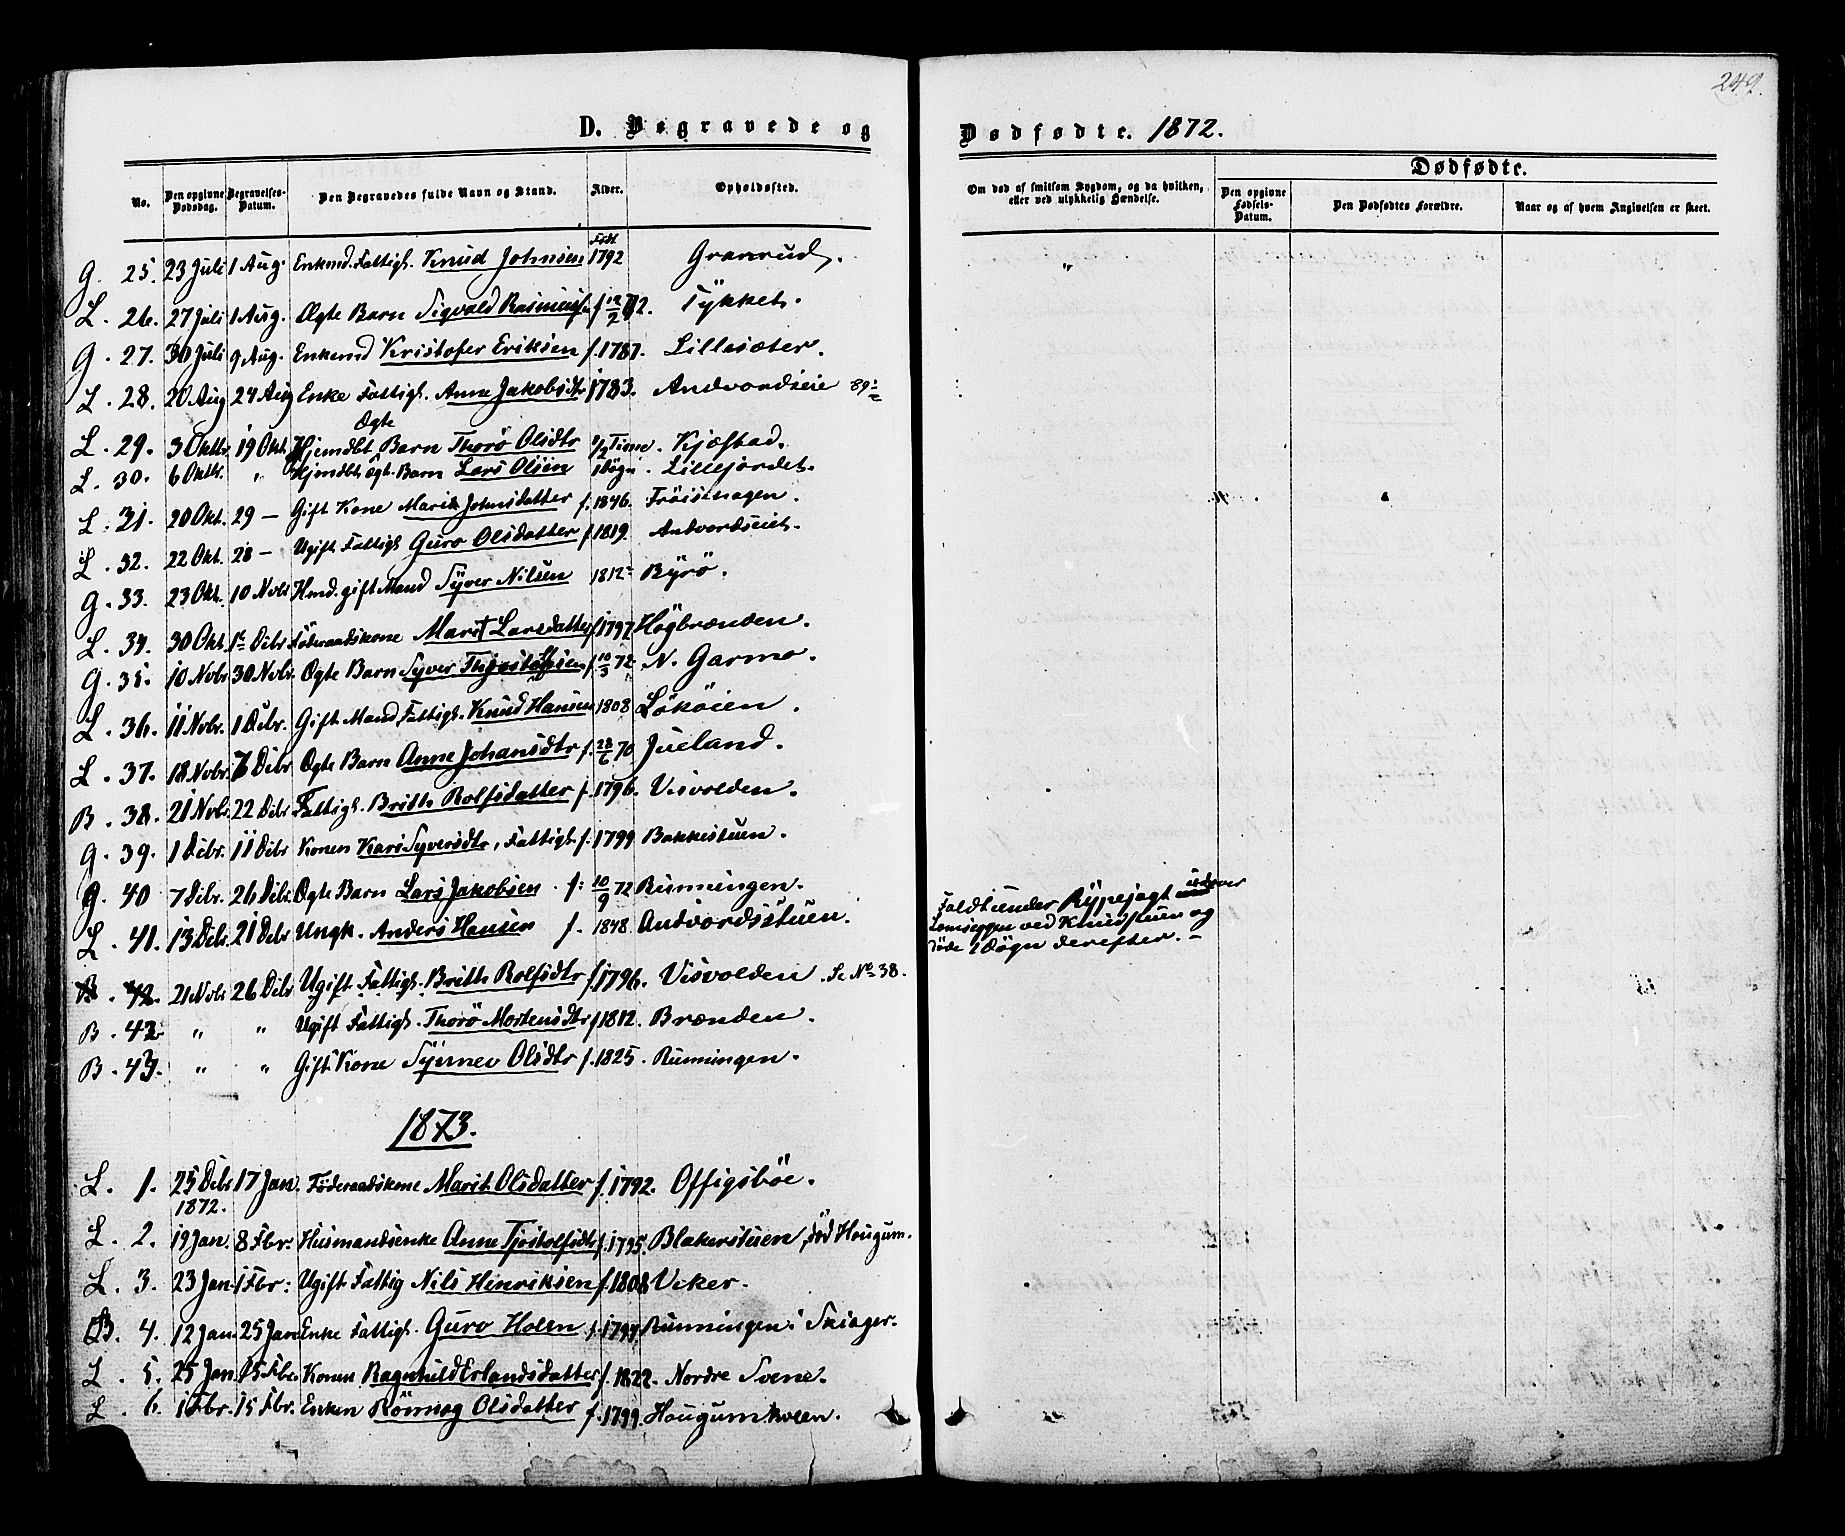 249.
D. Begravede og
Dødfødte. 1872.
No.
Den opgivne Dødsdag.
Begravelses-Datum.
Den Begravedes fulde Navn og Stand.
Alder.
Opholdssted.
Om død af smitsom Sygdom, og da hvilken, eller ved ulykkelig Hændelse.
Dødfødte.
Den opgivne Fødsels-Datum.
Den Dødfødtes Forældre.
Naar og af hvem Angivelsen er skeet.
G. 25. 23 Juli 1 Aug. Enkmd. Fattigl. Knud Johnsen Født 1792 Granrud.
L. 26. 27 Juli 1 Aug. Ægte Barn Sigvald Rasmuss. f. 12/2 72. Tykket.
G. 27. 30 Juli 9 Aug. Enkemd Kristofer Eriksen f. 1787. Lillesæter.
L. 28. 20 Aug 24 Aug Enke Fattigl. Anne Jakobsdtr 1783. Andvordseie 89
L. 29. 3 Oktbr. 19 Okt. Hjemdbt Ægte Barn Thorø Olsdtr 1/2 Time. Kjæstad.
L. 30. 6 Oktbr. " Hjemdbt ægt. Barn Lars Olsen 1 Døgn. Lillejordet.
L. 31. 20 Okt. 29 — Gift Kone Marit Johnsdatter f. 1846. Frøisehagen.
L. 32. 22 Okt. 28 — Ugift Fattigl Guro Olsdatter f 1819. Andvordseiet.
G. 33. 23 Okt. 10 Nvbr Hmd. gift Mand Syver Nilsen 1812 Byrø.
L. 34. 30 Okt. 1 Debr. Føderaadskone Marit Larsdatter f 1797 Høgbrænden.
G. 35. 10 Nvbr 30 Nvbr. Ægte Barn Syver Thorstensen f. 10/3 72 N. Garmo.
L. 36. 11 Nvbr. 1 Debr. Gift Mand Fattigl. Knud Hansen 1808 Løkøien.
L. 37. 18 Nvbr. 7 Debr Ægte Barn Anne Johansdtr f. 28/6 70 Jueland.
B. 38. 21 Nvbr. 22 Debr Fattigl. Brith Rolfsdatter f. 1796. Visvolden.
G. 39. 1 Debr. 11 Debr Konen Kari Syversdtr, Fattigl. f. 1799 Bakkestuen.
G. 40 7 Debr. 26 Debr. Ægte Barn Lars Jakobsen f: 10/9 72 Runningen.
L. 41. 13 Debr. 21 Debr Ungk. Anders Hansen f. 1848. Andvordsstuen.
Faldt under Rypejagt udover
Lomseggen ved Knudstuen og
døde 1 Døgn derefter. –
B. 42. 21 Nvbr 26 Debr Ugift Fattigl. Brith Rolfsdtr f. 1796. Visvolden. Se No 38.
B. 42. " " Ugift Fattigl. Thorø Mortensdtr f 1812. Brænden.
B. 43. " " Gift Kone Syrnev Olsdtr f. 1825. Runningen.
1873.
L. 1. 25 Debr 1872. 17 Jan. Føderaadskone Marit Olsdatter f. 1792. Offigsbøe.
L. 2. 19 Jan. 8 Fbr. Husmandsenke Anne Tjøstolfsdtr f. 1795. Blakerstuen, død Hougum.
L. 3. 23 Jan. 1 Fbr: Ugift Fattig Nils Henriksen f. 1808 Veker.
B. 4. 12 Jan 25 Jan Enke Fattigl. Guro Holen f. 1794. Runningen i Skiager.
L 5. 25 Jan 15 Fbr Konen Ragnhild Erlandsdatter f. 1822. Nordre Svene.
L. 6. 1 Fbr. 15 Fbr. Enken Rønnog Olsdatter f. 1799. Hougumkveen.